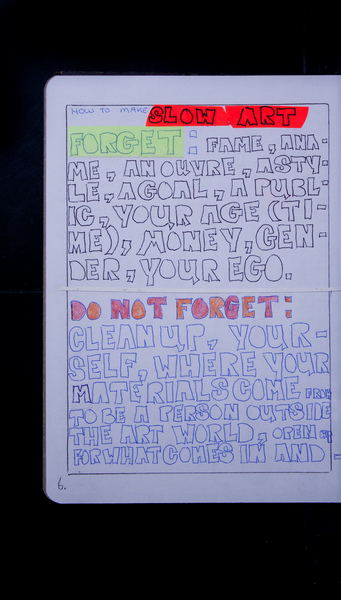 HOW TO MAKE SLOW ART
FORGET: FAME, ANA-
ME, AN OUVRE, A STY-
LE, A GOAL, A PUBL-
IC, YOUR AGE (TI-
ME), MONEY, GEN-
DER, YOUR EGO.
DO NOT FORGET:
CLEAN UP, YOUR-
SELF, WHERE YOUR
MATERIALS COME FROM
TO BE A PERSON OUTSIDE
THE ART WORLD, OPEN UP
FOR WHAT COMES IN AND
6.